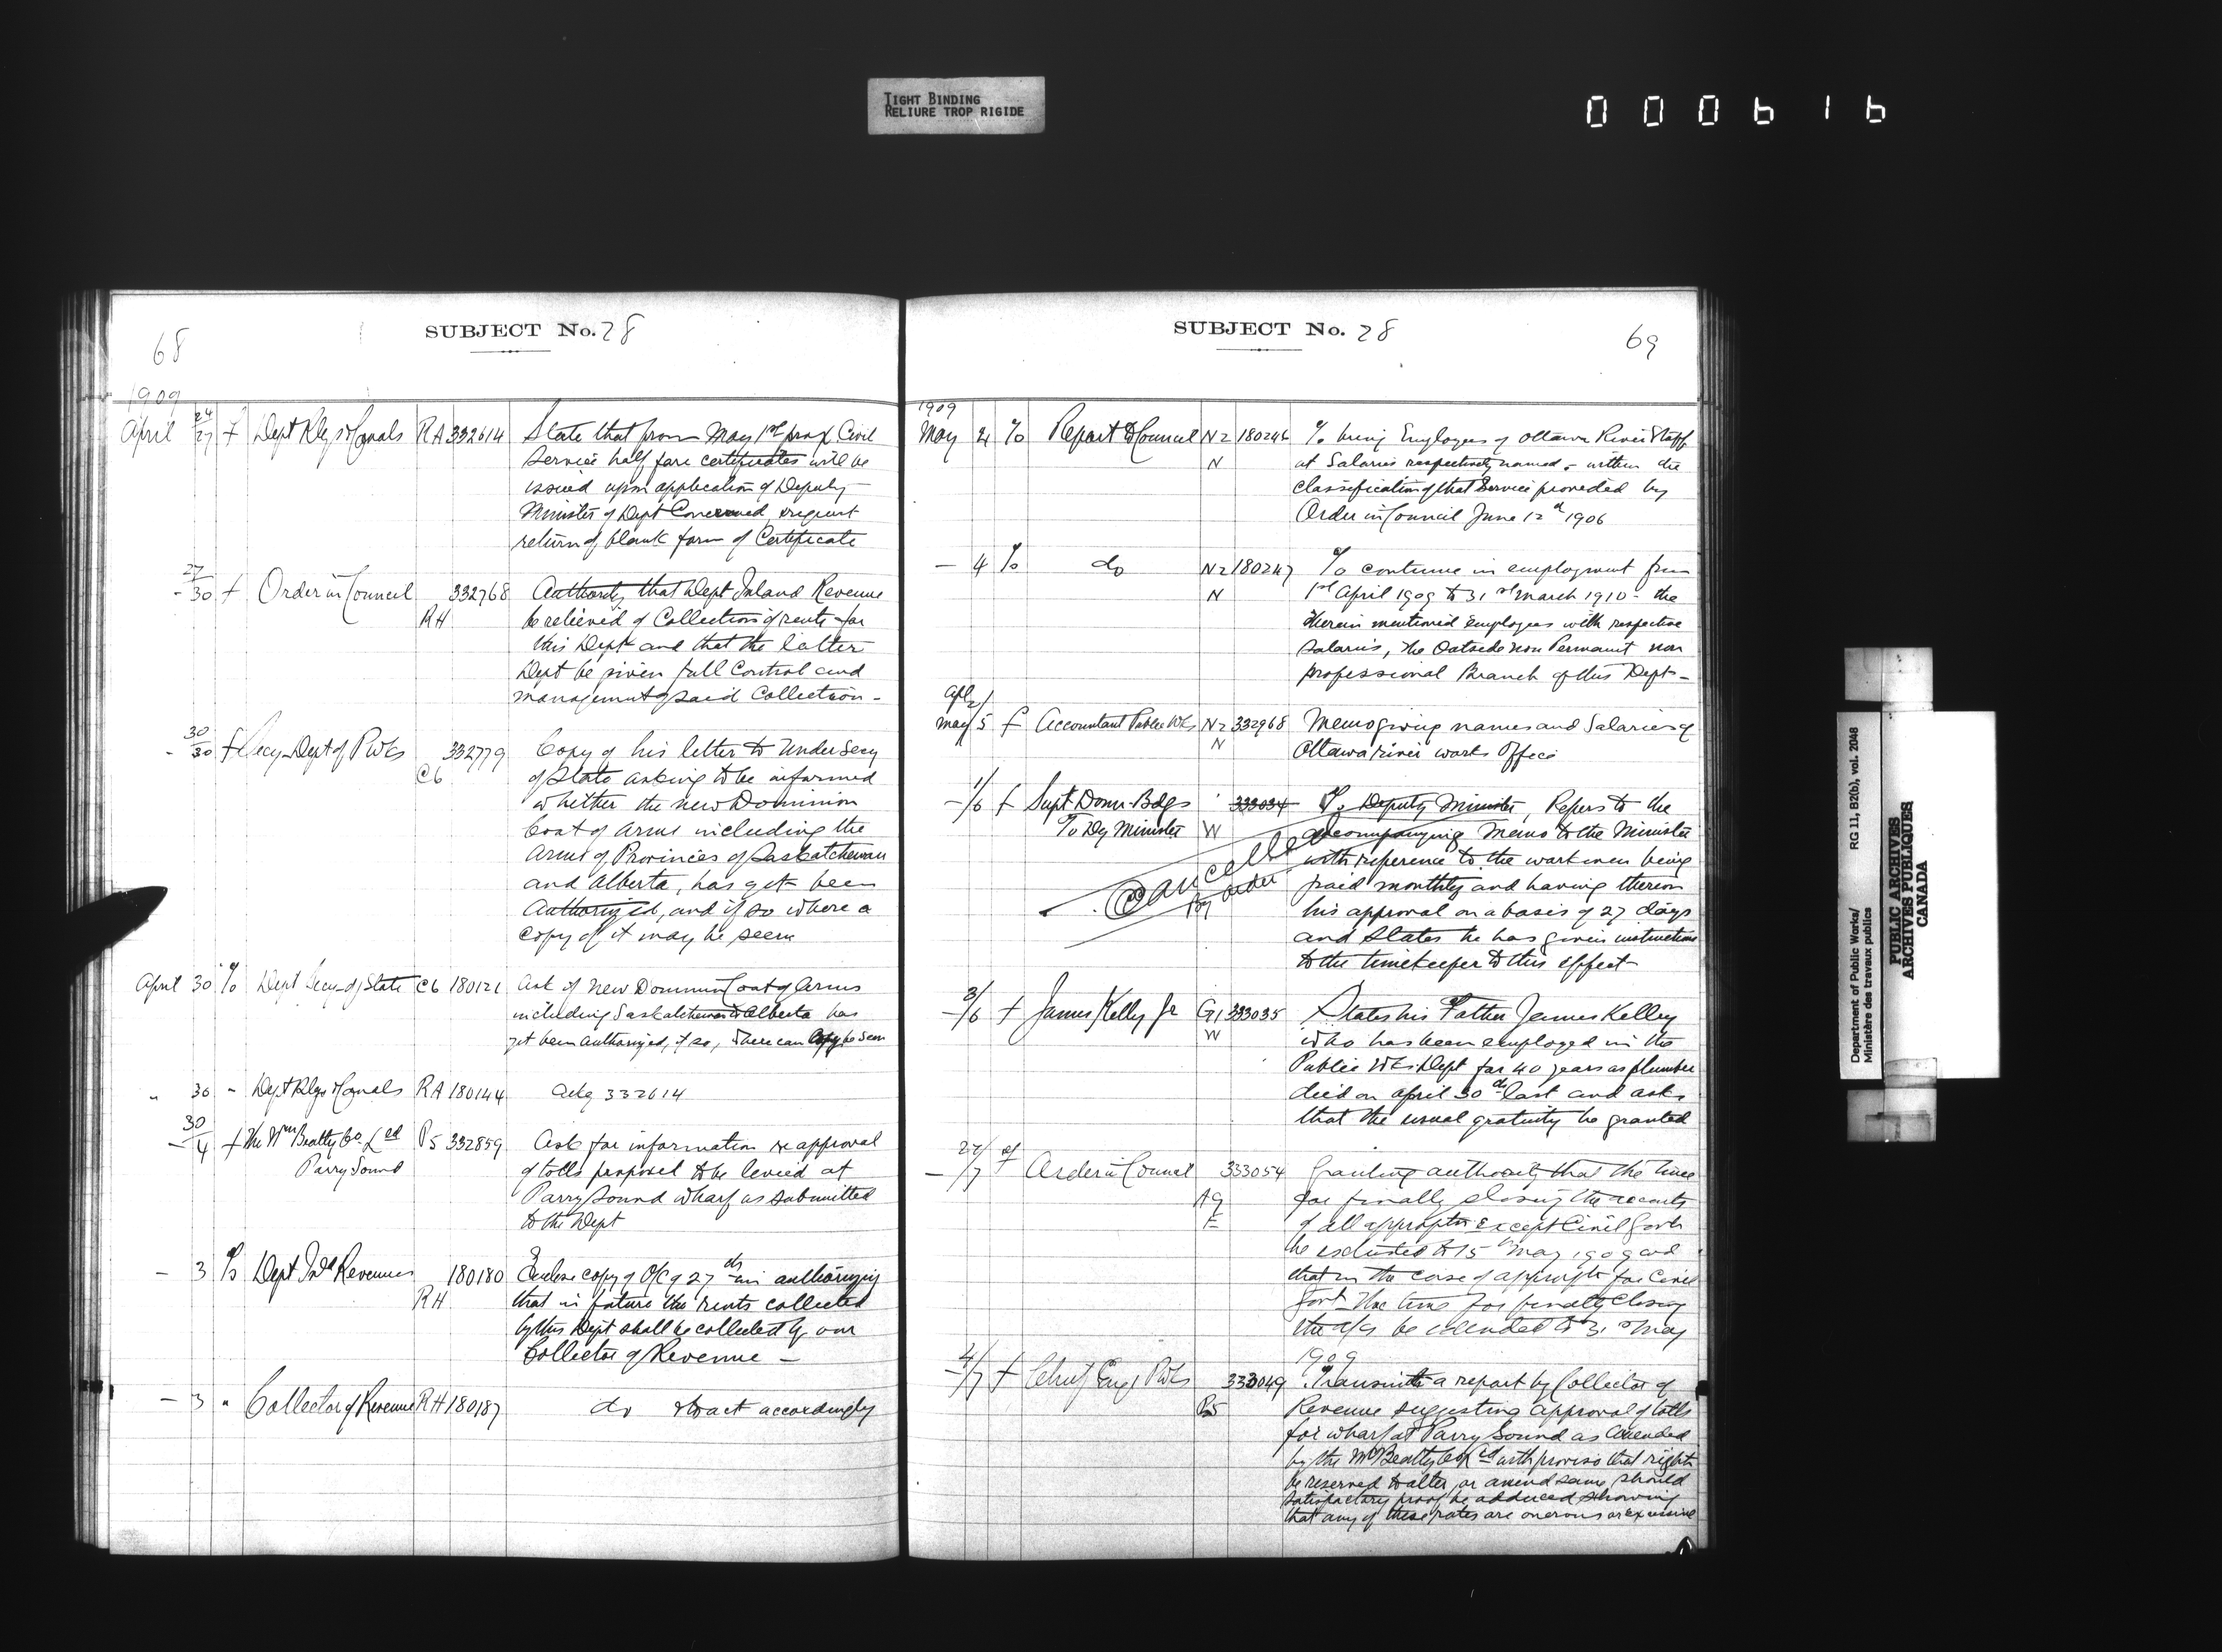 TIGHT BINDING
RELIURE TROP RIGIDE
000616
68
SUBJECT No. 28
1909
April 24/27 f Dept Rlys & Canals RA 332614 State that from May 1st prox Civil
Service half fare certificates will be
issued upon application of Deputy
Minister of Dept Concerned & request
return of blank form of Certificate
- 27/30 f Order in Council 332768 Authority that Dept Inland Revenue
RH be relieved of Collection of rents for
this Dept and that the latter
Dept be given full Control and
management of said Collection -
- 30/30 f Secy Dept of P Wks 332779 Copy of his letter to Under Secy
C6 of State asking to be informed
whether the new Dominion
Coat of Arms including the
Arms of Provinces of Saskatchewan
and Alberta, has yet been
Authorized, and if so where a
copy of it may be seen
April 30 To Dept Secy of State C6 180121 Ask if New Dominion Coat of Arms
including Saskatchewan & Alberta has
yet been authorized, if so, where can Copy be seen
" 30 " Dept Rlys & Canals RA 180144 Ackg 332614
- 30/4 f The Wm Beatty Co. Led P5 332859 Ask for information re approval
Parry Sound of tolls proposed to be levied at
Parry Sound wharf as submitted
to the Dept
- 3 To Dept Inld Revenue 180180 Enclose copy of O/C of 27th authorizing
RH that in future the rents collected
by this Dept shall be collected by our
Collector of Revenue -
- 3 " Collector of Revenue RH 180187 do & to act accordingly
SUBJECT No. 28
69
1909
May 4 To Report to Council N2 180246 To bring Employees of Ottawa River Staff
N at Salaries respectively named - within the
classification of that Service provided by
Order in Council June 12th 1906
- 4 To do N2 180247 To continue in employment from
N 1st April 1909 to 31st March 1910 - the
therein mentioned employees with respective
salaries, the Outside non Permanent non
professional Branch of this Dept -
Apl 2/
May 5 f Accountant Public Wks N2 332968 Memo giving names and Salaries of
N Ottawa river works Office
- 1/6 f Supt Domn. Bdgs 333034 To Deputy Minister, Refers to the
To Dy Minister W accompanying Memo to the Minister
with reference to the workmen being
Cancelled paid monthly and having thereon
by order his approval on a basis of 27 days
and States he has given instructions
to the timekeeper to this effect
- 3/6 f James Kelly Jr G1 333035 States his Father James Kelley
W who has been employed in the
Public Wks Dept for 40 years as plumber
died on April 30th last and asks
that the usual gratuity be granted
- 27/7 of Order in Council 333054 Granting authority that the time
Ag for finally closing the accounts
E of all appropts except Civil Govt
be extended to 15th May 1909 and
that in the case of appropts for Civil
Govt the time for finally closing
the a/cs be extended to 31st May
1909
- 4/7 f Chief Eng. P Wks 333049 Transmits a report by Collector of
P5 Revenue suggesting approval of tolls
for wharf at Parry Sound as amended
by the Wm Beatty Co Led with proviso that right
be reserved to alter, or amend same, should
satisfactory proof be adduced showing
that any of these rates are onerous or excessive
Department of Public Works/ RG 11, B2(b), vol. 2048
Ministère des travaux publics
PUBLIC ARCHIVES
ARCHIVES PUBLIQUES
CANADA